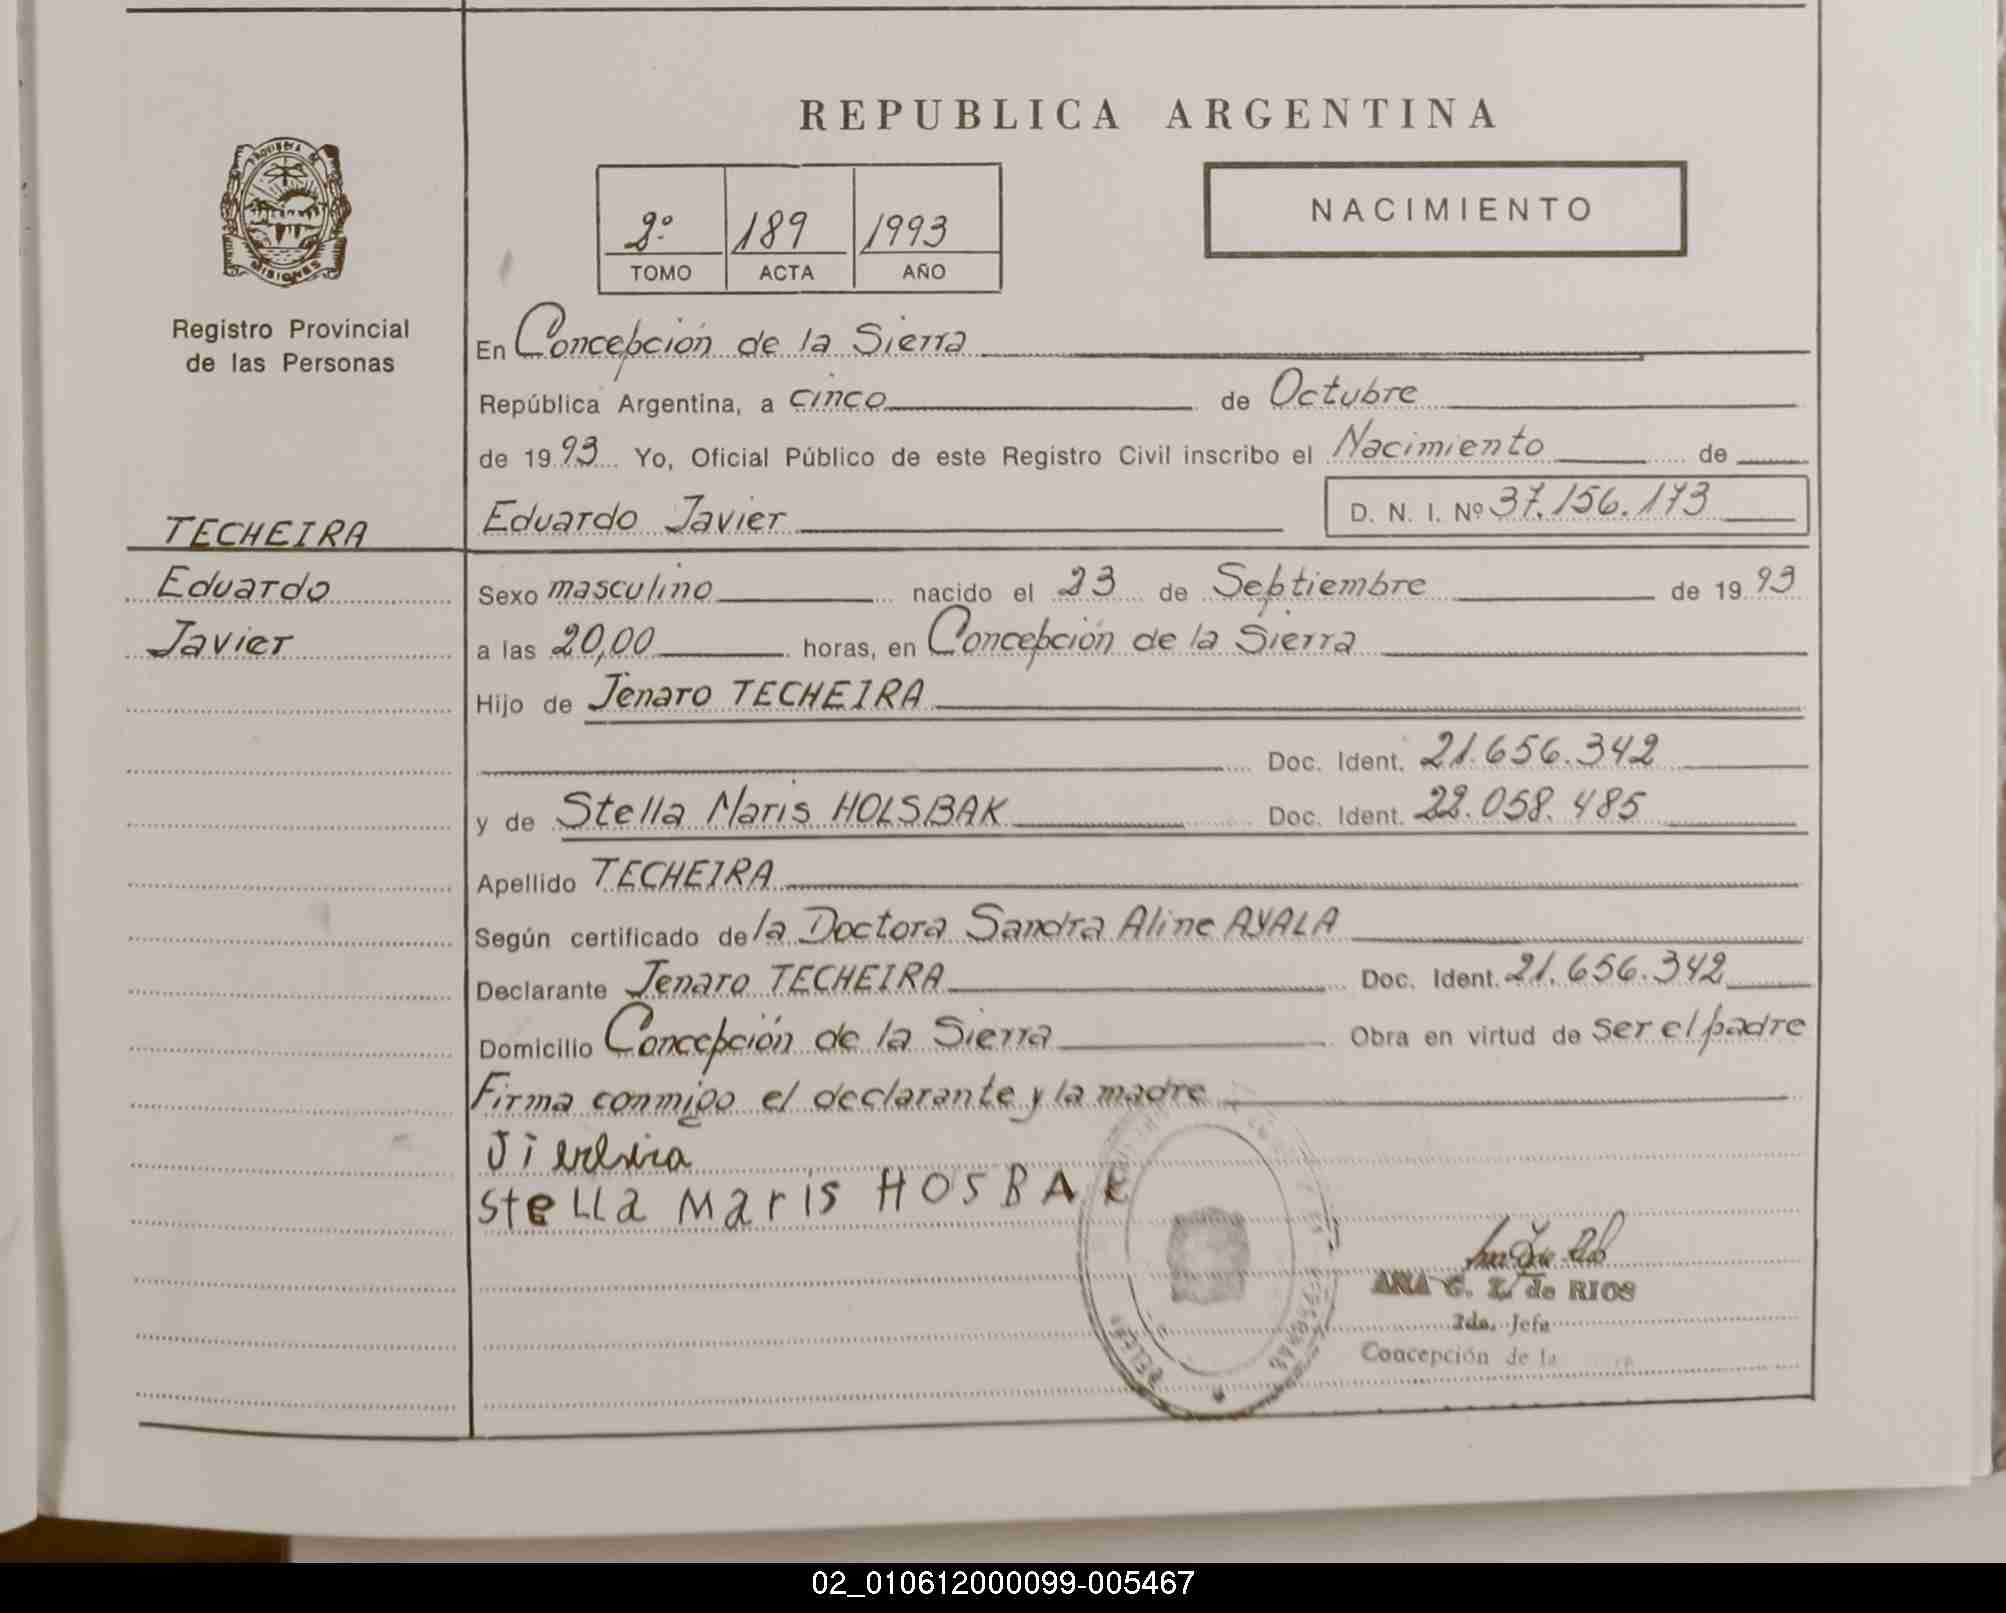 REPUBLICA ARGENTINA
PROVINCIA DE
MISIONES
Registro Provincial
de las Personas
2º 189 1993
TOMO ACTA AÑO
NACIMIENTO
En Concepción de la Sierra
República Argentina, a cinco de Octubre
de 1993 Yo, Oficial Público de este Registro Civil inscribo el Nacimiento de
Eduardo Javier D. N. I. Nº 37.156.173
TECHEIRA
Eduardo
Javier
Sexo masculino nacido el 23 de Septiembre de 1993
a las 20,00 horas, en Concepción de la Sierra
Hijo de Jenaro TECHEIRA
Doc. Ident. 21.656.342
y de Stella Maris HOLSBAK Doc. Ident. 22.058.485
Apellido TECHEIRA
Según certificado de la Doctora Sandra Aline AYALA
Declarante Jenaro TECHEIRA Doc. Ident. 21.656.342
Domicilio Concepción de la Sierra Obra en virtud de ser el padre
Firma conmigo el declarante y la madre
Stella Maris HOSBAK
ANA G. Z. de RIOS
2da. Jefa
Concepción de la
02_010612000099-005467